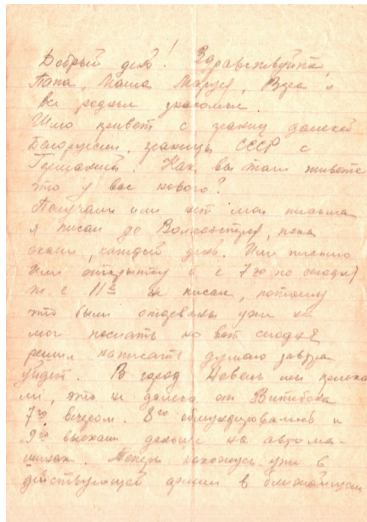 Добрый день! Здравствуйте
Папа, Мама, Маруся, Вера и
все родные знакомые.
Шлю привет с границ далекой
Белоруссии, границы СССР с
Германией. Как вы там живете
что у вас нового?
Получали или нет мои письма
я писал до
каждый день. Или письмо
или открытку и с 7го по сегодня
т.е. 11е не писал, потому
что были уже не
мог послать но вот сегодня
решил написать думаю завтра
уйдет. В город Невель мы приеха
ли, это не далеко от Витебска
7го вечером. 8го обмундировались и
9го выехали дальше на автома-
шинах. Теперь нахожусь уже в
действующей армии в